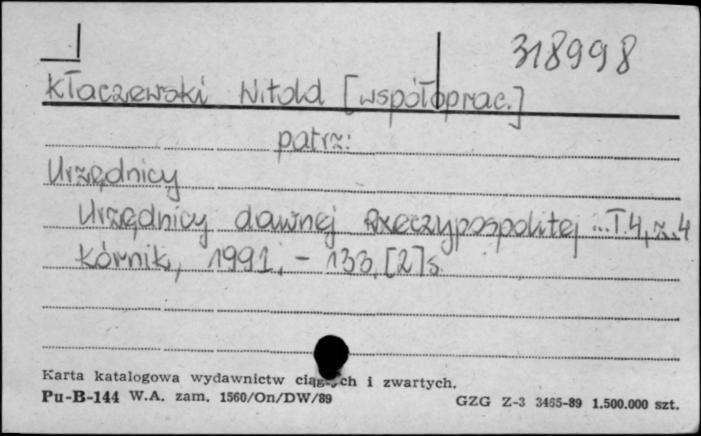 318998
Kłaczewski Witold [współoprac.]
patrz:
Urzędnicy
Urzędnicy dawnej Rzeczypospolitej ... T.4, z.4
Kórnik, 1991. - 133, [2] s.
Karta katalogowa wydawnictw ciągłych i zwartych.
Pu-B-144 W.A. zam. 1560/On/DW/89 GZG Z-3 3465-89 1.500.000 szt.